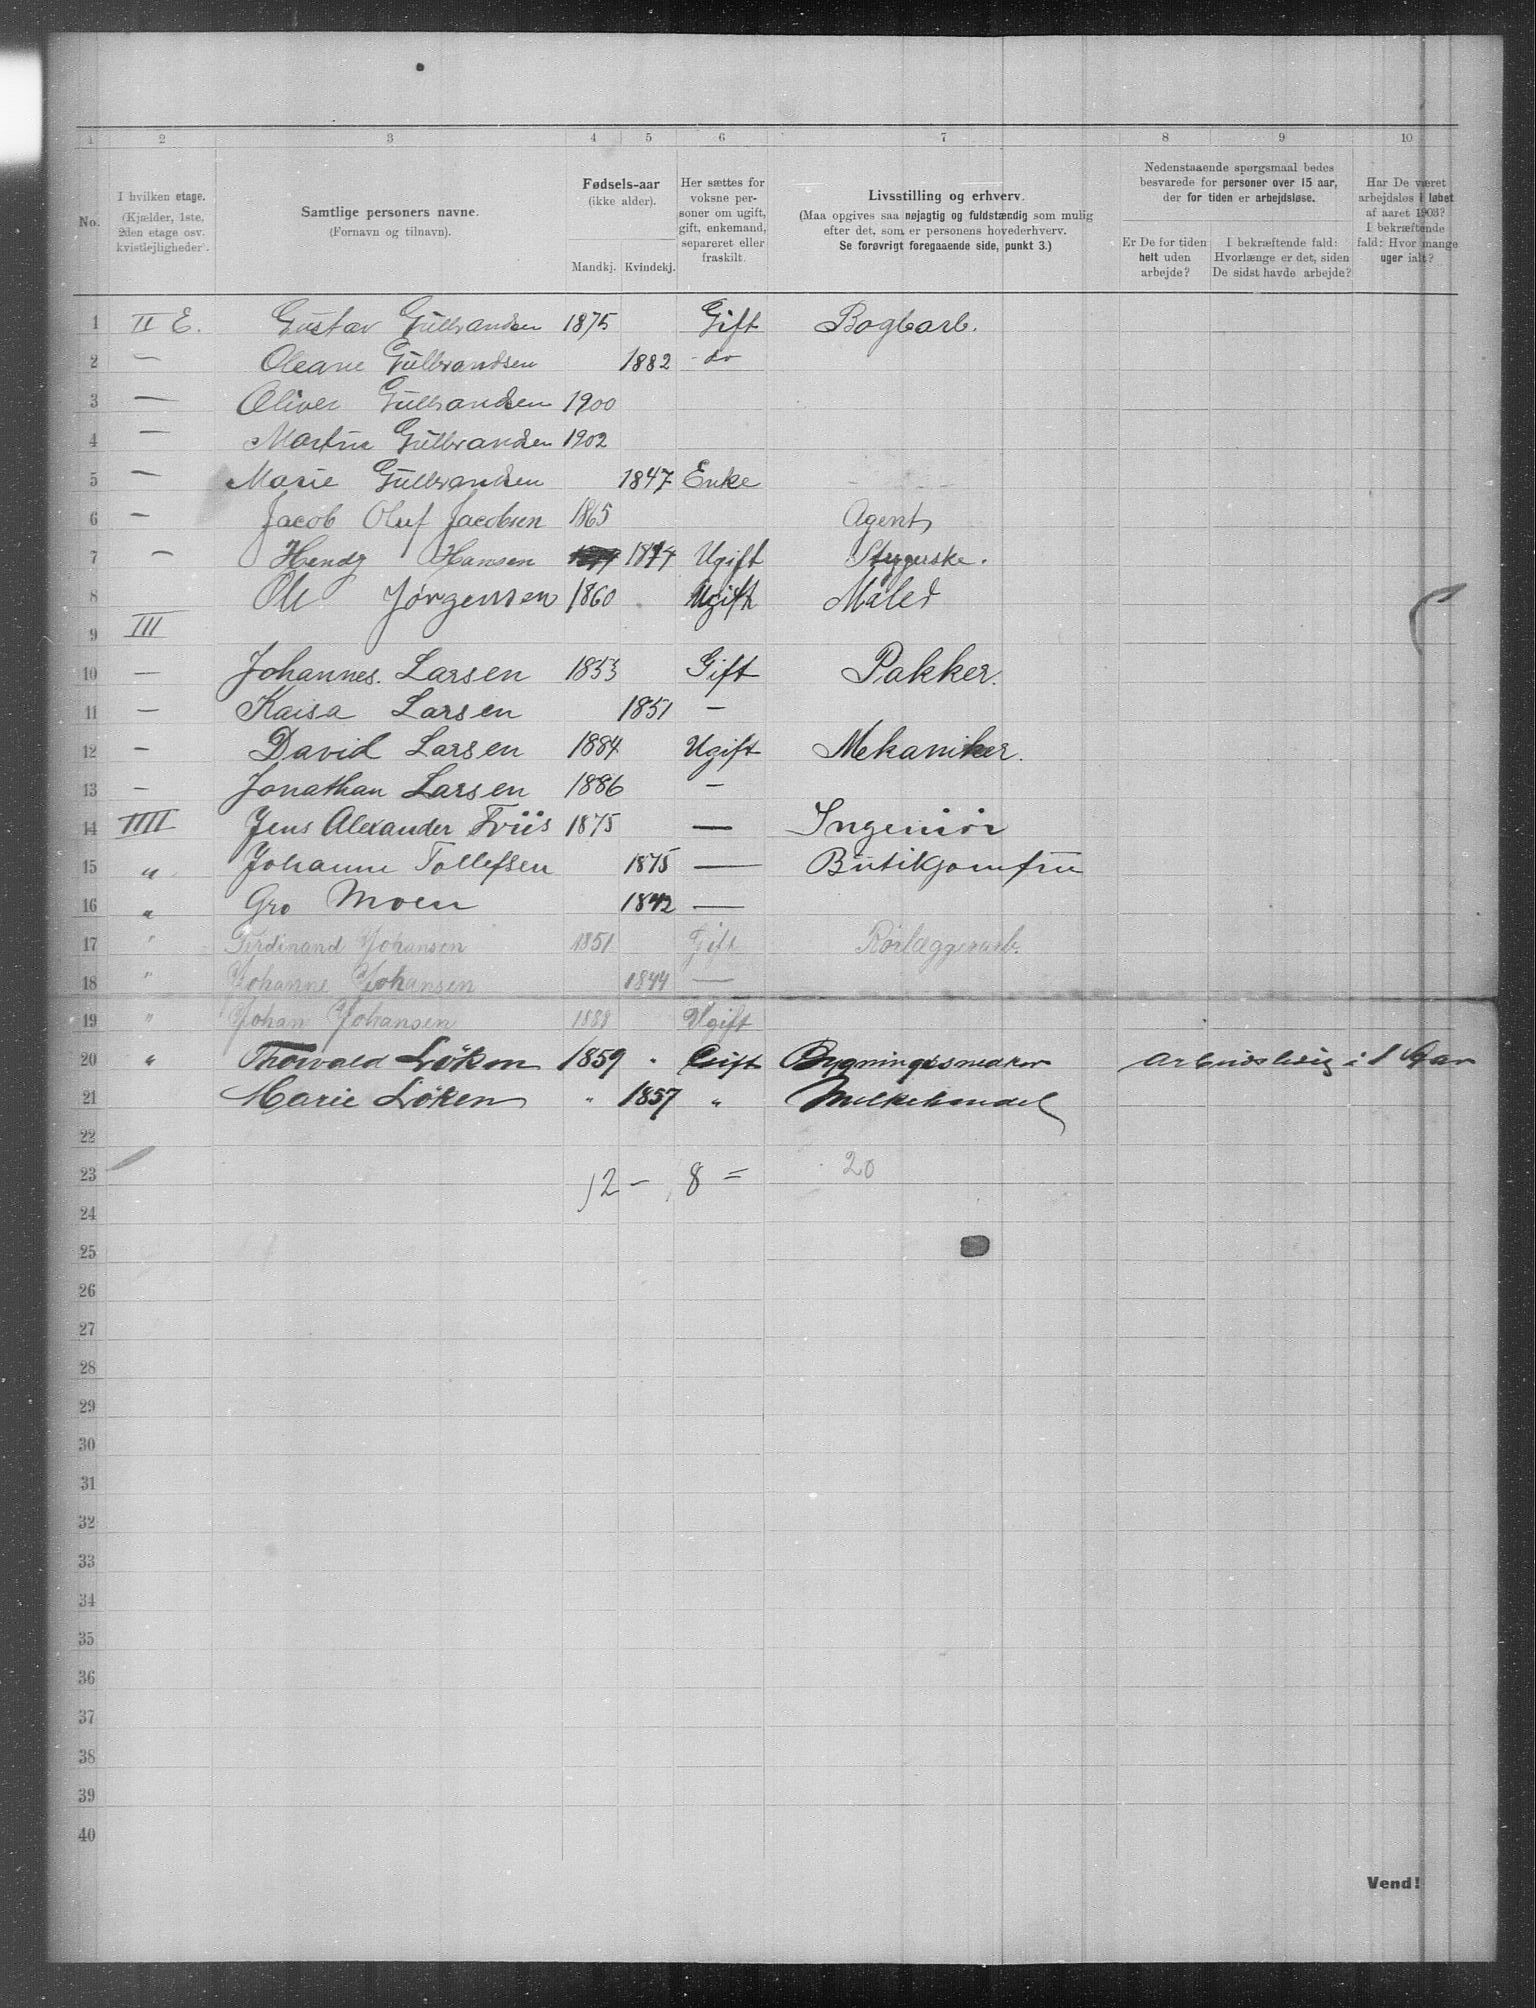 1 2 3 4 5 6 7 8 9 10
No.
I hvilken etage. (Kjælder, 1ste, 2den etage osv. kvistlejligheder).
Samtlige personers navne. (Fornavn og tilnavn).
Fødsels-aar (ikke alder).
Mandkj. Kvindekj.
Her sættes for voksne personer om ugift, gift, enkemand, separeret eller fraskilt.
Livsstilling og erhverv.
(Maa opgives saa nøjagtig og fuldstændig som mulig efter det, som er personens hovederhverv.
Se forøvrigt foregaaende side, punkt 3.)
Nedenstaaende spørgsmaal bedes besvarede for personer over 15 aar, der for tiden er arbejdsløse.
Er De for tiden helt uden arbejde?
I bekræftende fald: Hvorlænge er det, siden De sidst havde arbejde?
Har De været arbejdsløs i løbet af aaret 1903? I bekræftende fald: Hvor mange uger ialt?
1 II E. Gustav Gulbrandsen 1875 Gift Bogbarb.
2 — Oleane Gulbrandsen 1882 do
3 — Oliver Gulbrandsen 1900
4 — Martin Gulbrandsen 1902
5 — Marie Gulbrandsen 1847 Enke
6 — Jacob Oluf Jacobsen 1865 Agent
7 — Hendy Hansen 1874 Ugift Strygerske.
8 Ole Jørgensen 1860 Ugift Maler
9 III
10 — Johannes. Larsen 1853 Gift Pakker.
11 — Kaisa Larsen 1851 —
12 — David Larsen 1884 Ugift Mekaniker.
13 — Jonathan Larsen 1886 —
14 IIII Jens Alexander Friis 1875 — Ingeniør
15 " Johanne Tollefsen 1875 — Butikjomfru
16 " Gro Moen 1842 —
17 " Ferdinand Johansen 1851 Gift Rørlæggerarb.
18 " Johanne Johansen 1844 —
19 " Johan Johansen 1888 Ugift
20 " Thorvald Löken 1859 " Gift Bygningssnedker Arbeidsledig i 1 Aar
21 Marie Löken " 1857 " Melkehandel
22
23 12 — 8 = 20
24
25
26
27
28
29
30
31
32
33
34
35
36
37
38
39
40
Vend!